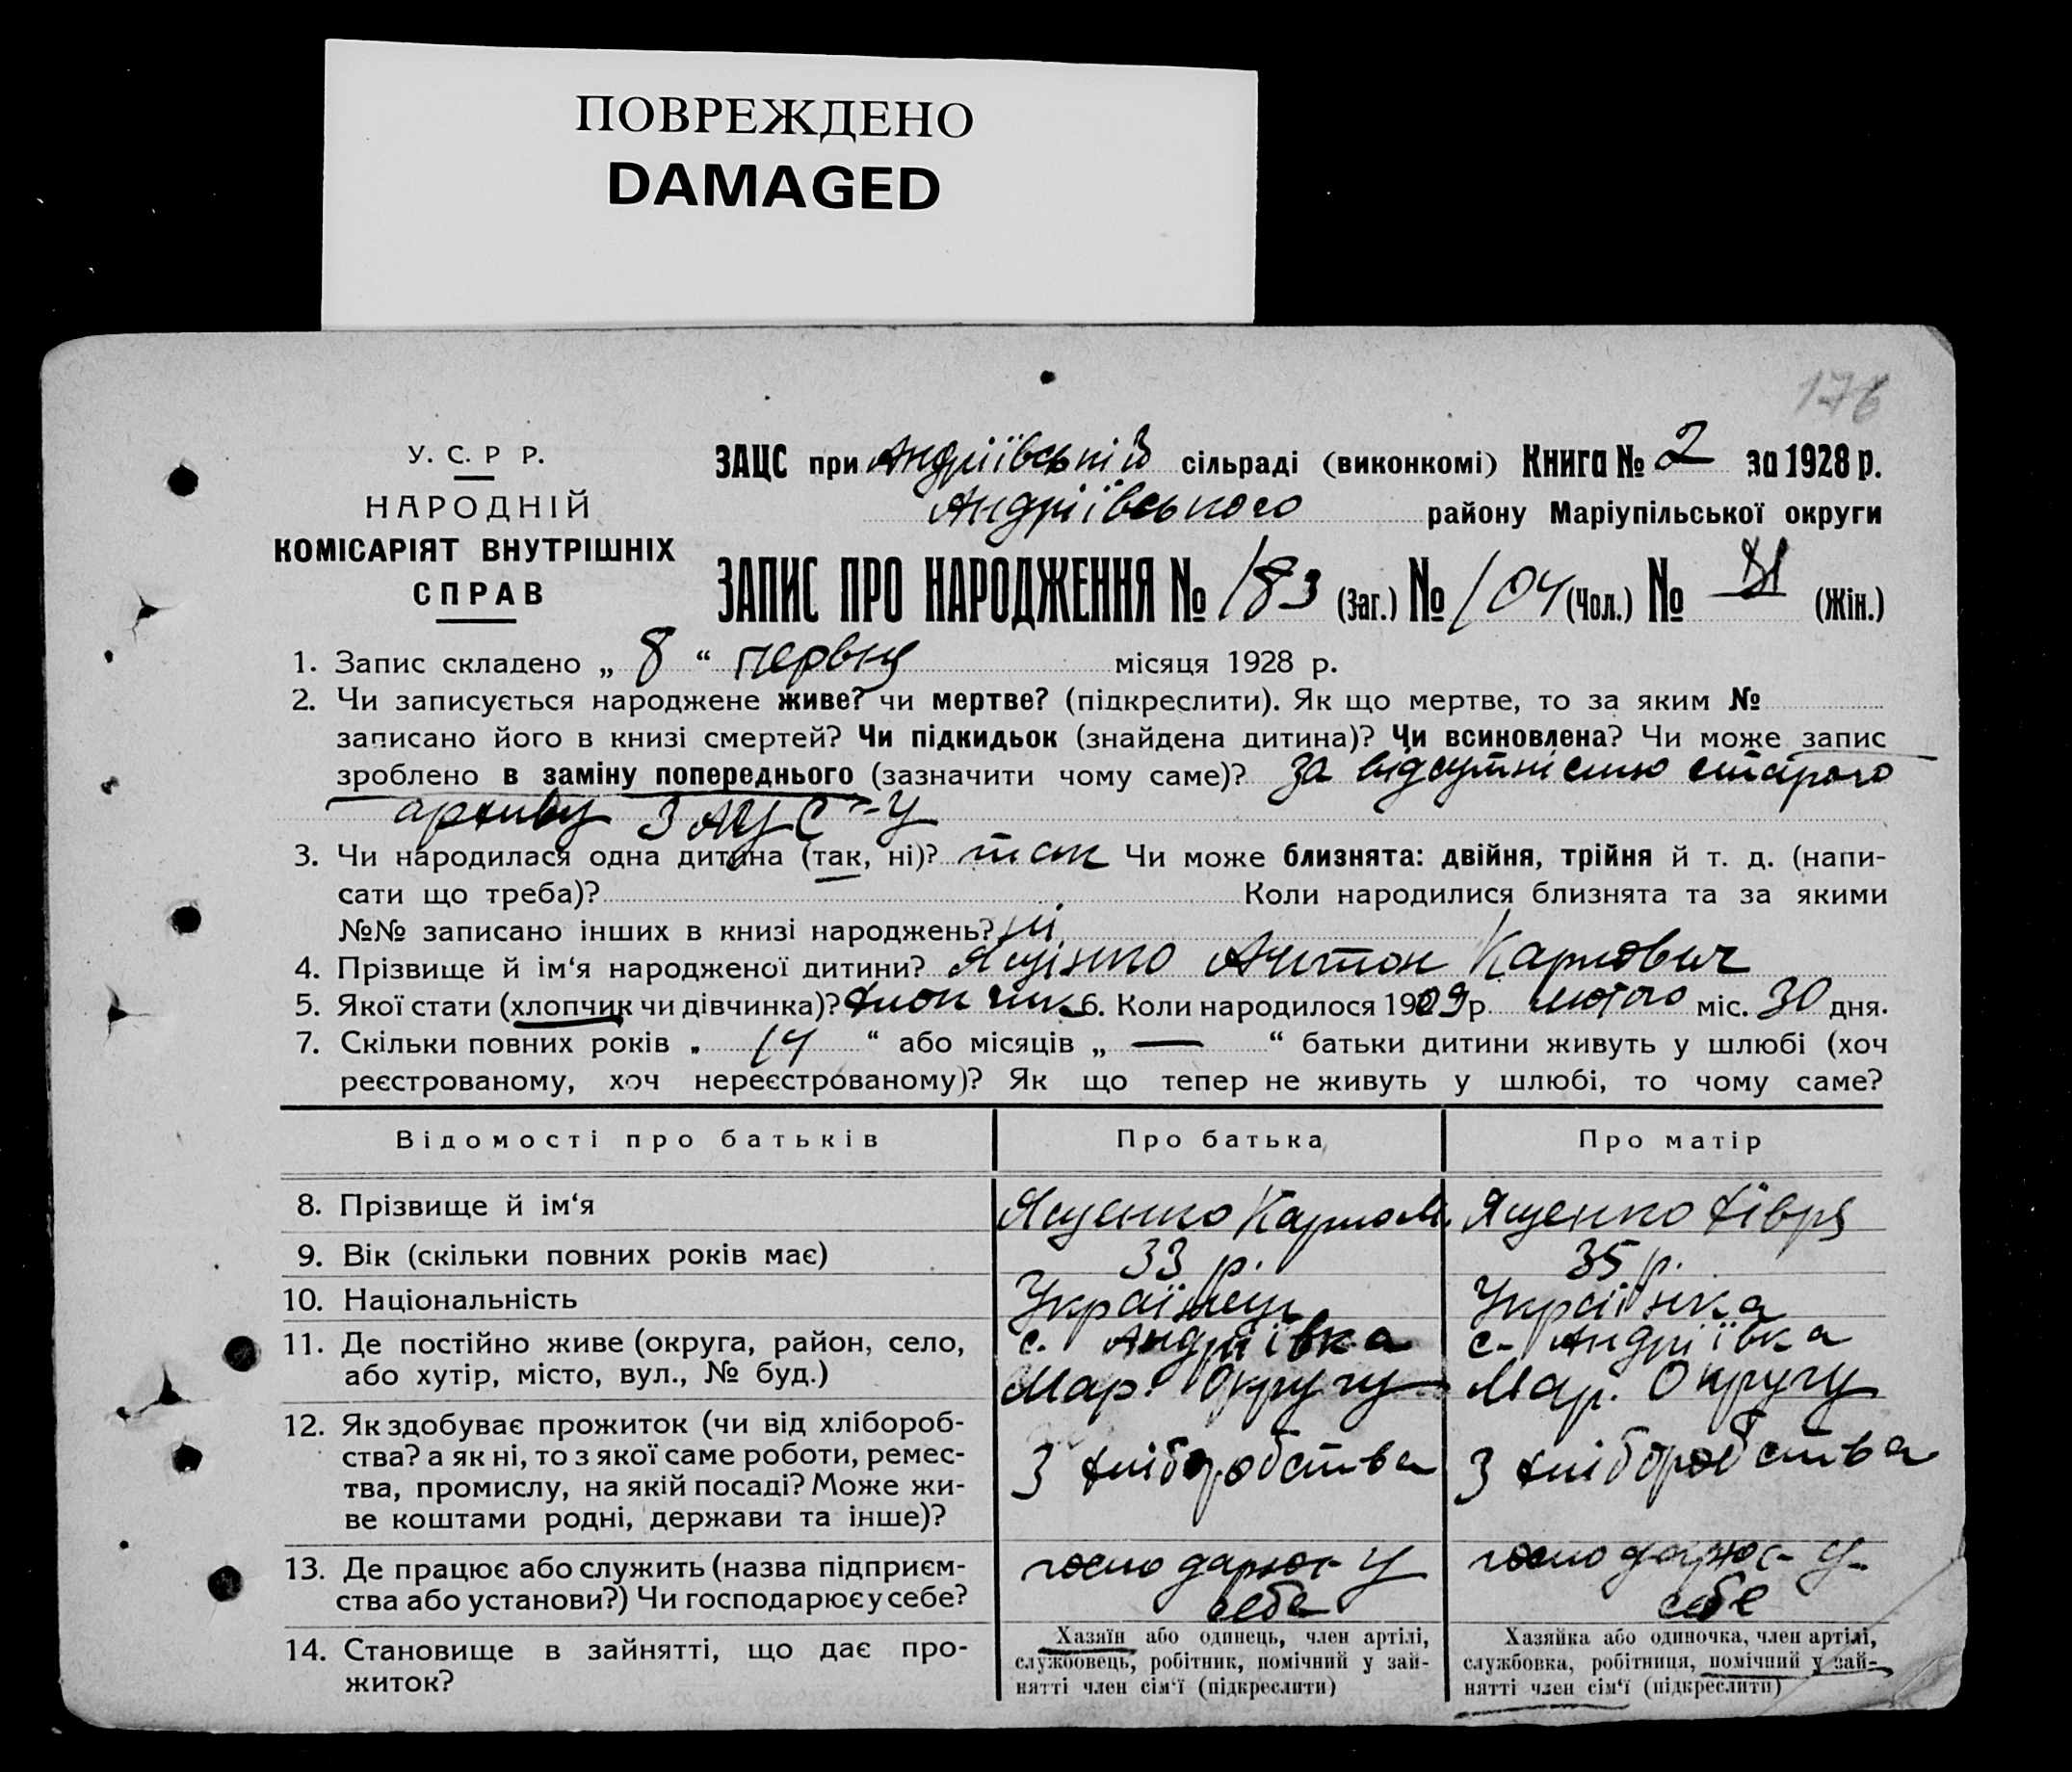 ПОВРЕЖДЕНО
DAMAGED
176
У. С. Р Р.
НАРОДНІЙ
КОМІСАРІЯТ ВНУТРІШНІХ
СПРАВ
ЗАЦС при Андріївській сільраді (виконкомі) Книга № 2 за 1928 р.
Андріївського району Маріупільської округи
ЗАПИС ПРО НАРОДЖЕННЯ № 183 (Заг.) № 104 (Чол.) № (Жін.)
1. Запис складено „ 8 “ червня місяця 1928 р.
2. Чи записується народжене живе? чи мертве? (підкреслити). Як що мертве, то за яким №
записано його в книзі смертей? Чи підкидьок (знайдена дитина)? Чи всиновлена? Чи може запис
зроблено в заміну попереднього (зазначити чому саме)? За відсутністю старого
архиву ЗАЦС-у
3. Чи народилася одна дитина (так, ні)? так Чи може близнята: двійня, трійня й т. д. (напи-
сати що треба)? Коли народилися близнята та за якими
№№ записано інших в книзі народжень? ні
4. Прізвище й ім‘я народженої дитини? Ященко Антон Карпович
5. Якої стати (хлопчик чи дівчинка)? хлопчик 6. Коли народилося 1909 р. лютого міс. 30 дня.
7. Скільки повних років „ 14 “ або місяців „ — “ батьки дитини живуть у шлюбі (хоч
реєстрованому, хоч нереєстрованому)? Як що тепер не живуть у шлюбі, то чому саме?
Відомості про батьків Про батька Про матір
8. Прізвище й ім‘я Ященко Карпо М. Ященко Хівря
9. Вік (скільки повних років має) 33 р. 35 р.
10. Національність Українець Українка
11. Де постійно живе (округа, район, село, с. Андріївка с. Андріївка
або хутір, місто, вул., № буд.) Мар. Округу Мар. Округу
12. Як здобуває прожиток (чи від хлібороб-
ства? а як ні, то з якої саме роботи, ремес- З хліборобства З хліборобства
тва, промислу, на якій посаді? Може жи-
ве коштами родні, держави та інше)?
13. Де працює або служить (назва підприєм- господарює у господарює у
ства або установи?) Чи господарює у себе? себе себе
14. Становище в зайнятті, що дає про-
житок?
Хазяїн або одинець, член артілі,
службовець, робітник, помічний у зай-
нятті член сім‘ї (підкреслити)
Хазяйка або одиночка, член артілі,
службовка, робітниця, помічний у зай-
нятті член сім‘ї (підкреслити)